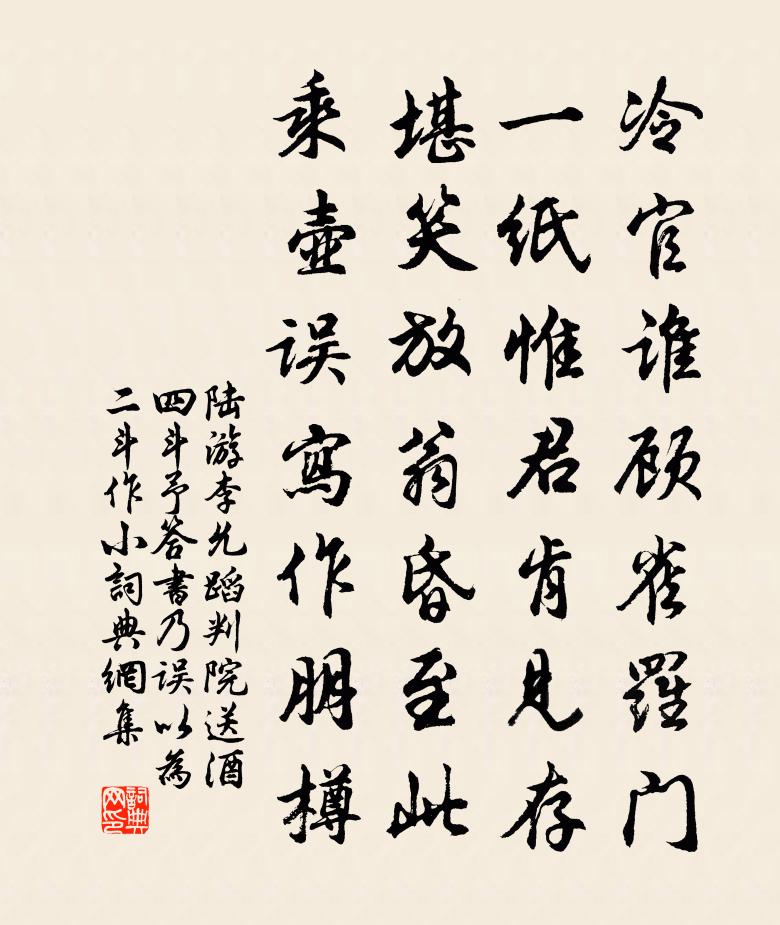 冷官谁顾雀羅门
一纸惟君肯见存
堪笑放翁昏至此
乘壺误寫作朋樽
陆游李允蹈判院送酒
四斗予答書乃误以為
二斗作小詞典網集
詞典
网印